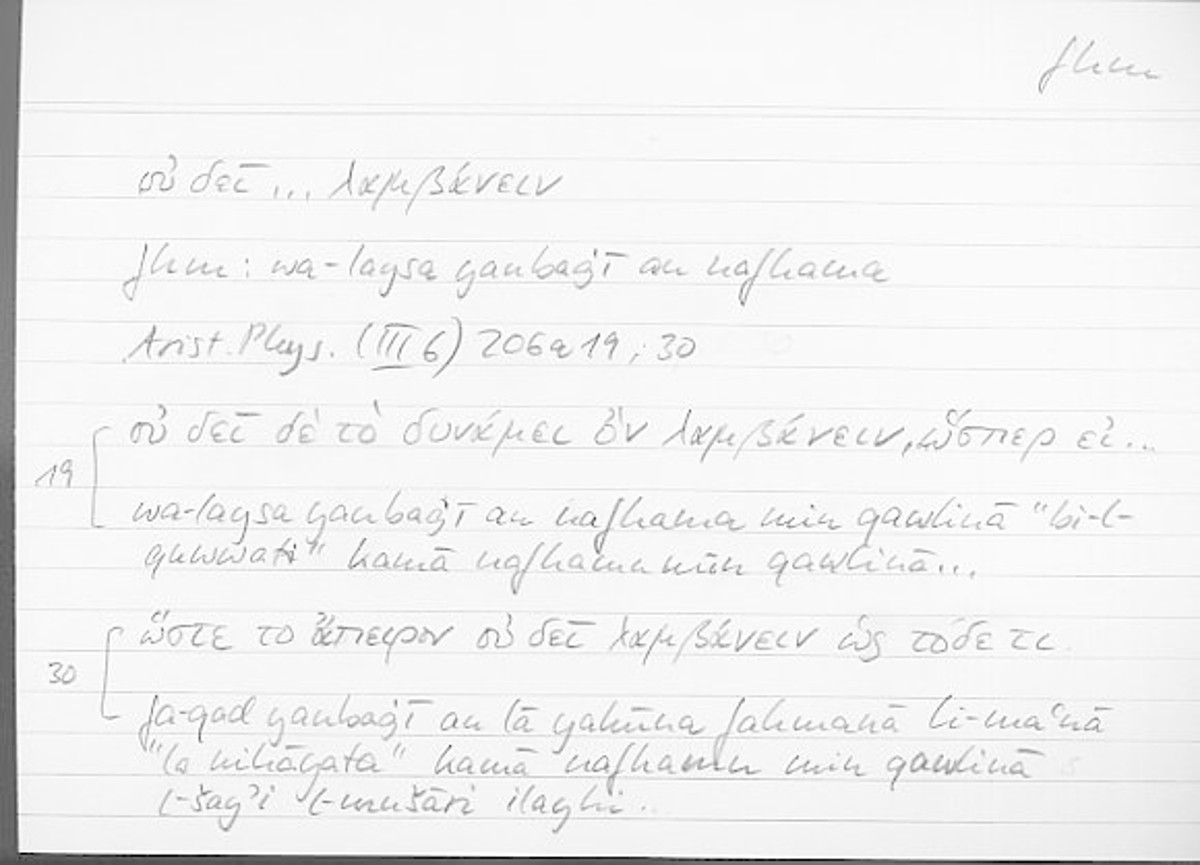 fhm
οὐ δεῖ ... λαμβάνειν
fhm: wa-laysa yanbaġī an nafhama
Arist. Phys. (III 6) 206a19; 30
οὐ δεῖ δὲ τὸ δυνάμει ὂν λαμβάνειν, ὥσπερ εἰ...
19
wa-laysa yanbaġī an nafhama min qawlinā "bi-l-
quwwati" kamā nafhamu min qawlinā...
ὥστε το ἄπειρον οὐ δεῖ λαμβάνειν ὡς τόδε τι.
30
fa-qad yanbaġī an lā yakūna fahmanā li-maʿnā
"lā nihāyata" kamā nafhamu min qawlinā
l-šayʾi l-mušāri ilayhi..